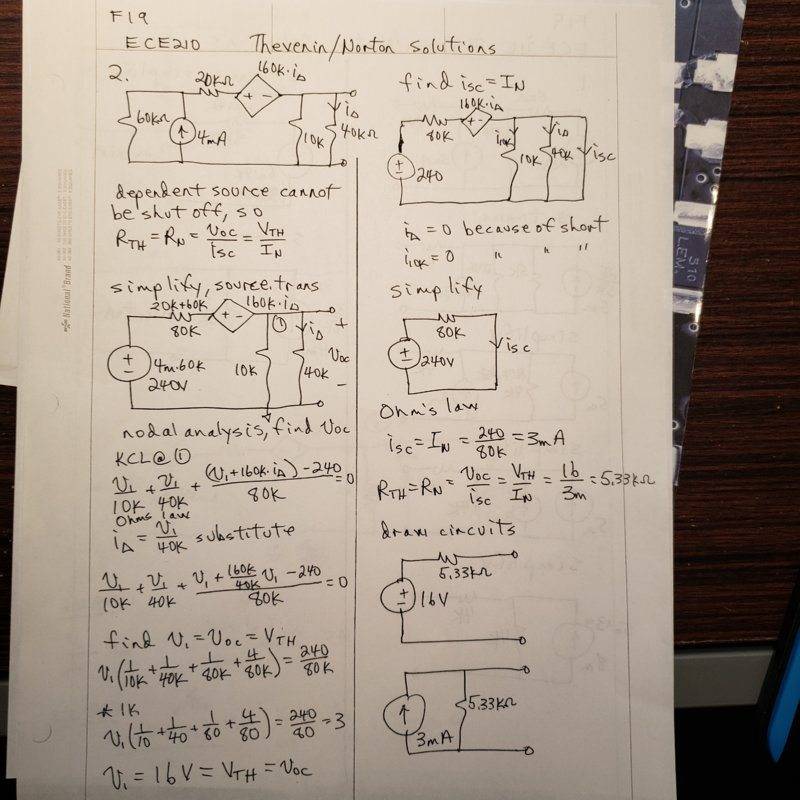 F19
ECE210 Thevenin/Norton Solutions
2.
20kΩ
160K·i△
60kΩ
4mA
10K
i△
40kΩ
dependent source cannot
be shut off, so
R_TH = R_N = v_oc/i_sc = V_TH/I_N
simplify, source trans
20K+60K
160K·i△
80K
①
i△
+
4m·60K
240V
10K
40K
v_oc
−
nodal analysis, find v_oc
KCL@①
v₁/10K + v₁/40K + ((v₁+160K·i△)−240)/80K = 0
Ohms law
i△ = v₁/40K substitute
v₁/10K + v₁/40K + (v₁ + (160K/40K) v₁ − 240)/80K = 0
find v₁ = v_oc = V_TH
v₁(1/10K + 1/40K + 1/80K + 4/80K) = 240/80K
* 1K
v₁(1/10 + 1/40 + 1/80 + 4/80) = 240/80 = 3
v₁ = 16V = V_TH = v_oc
find i_sc = I_N
160K·i△
80K
i_10K
i△
240
10K
40K
i_sc
i△ = 0 because of short
i_10K = 0 " " "
simplify
80K
240V
i_sc
Ohm's law
i_sc = I_N = 240/80K = 3mA
R_TH = R_N = v_oc/i_sc = V_TH/I_N = 16/3m = 5.33kΩ
draw circuits
5.33kΩ
16V
5.33kΩ
3mA
National® Brand
510
LEM